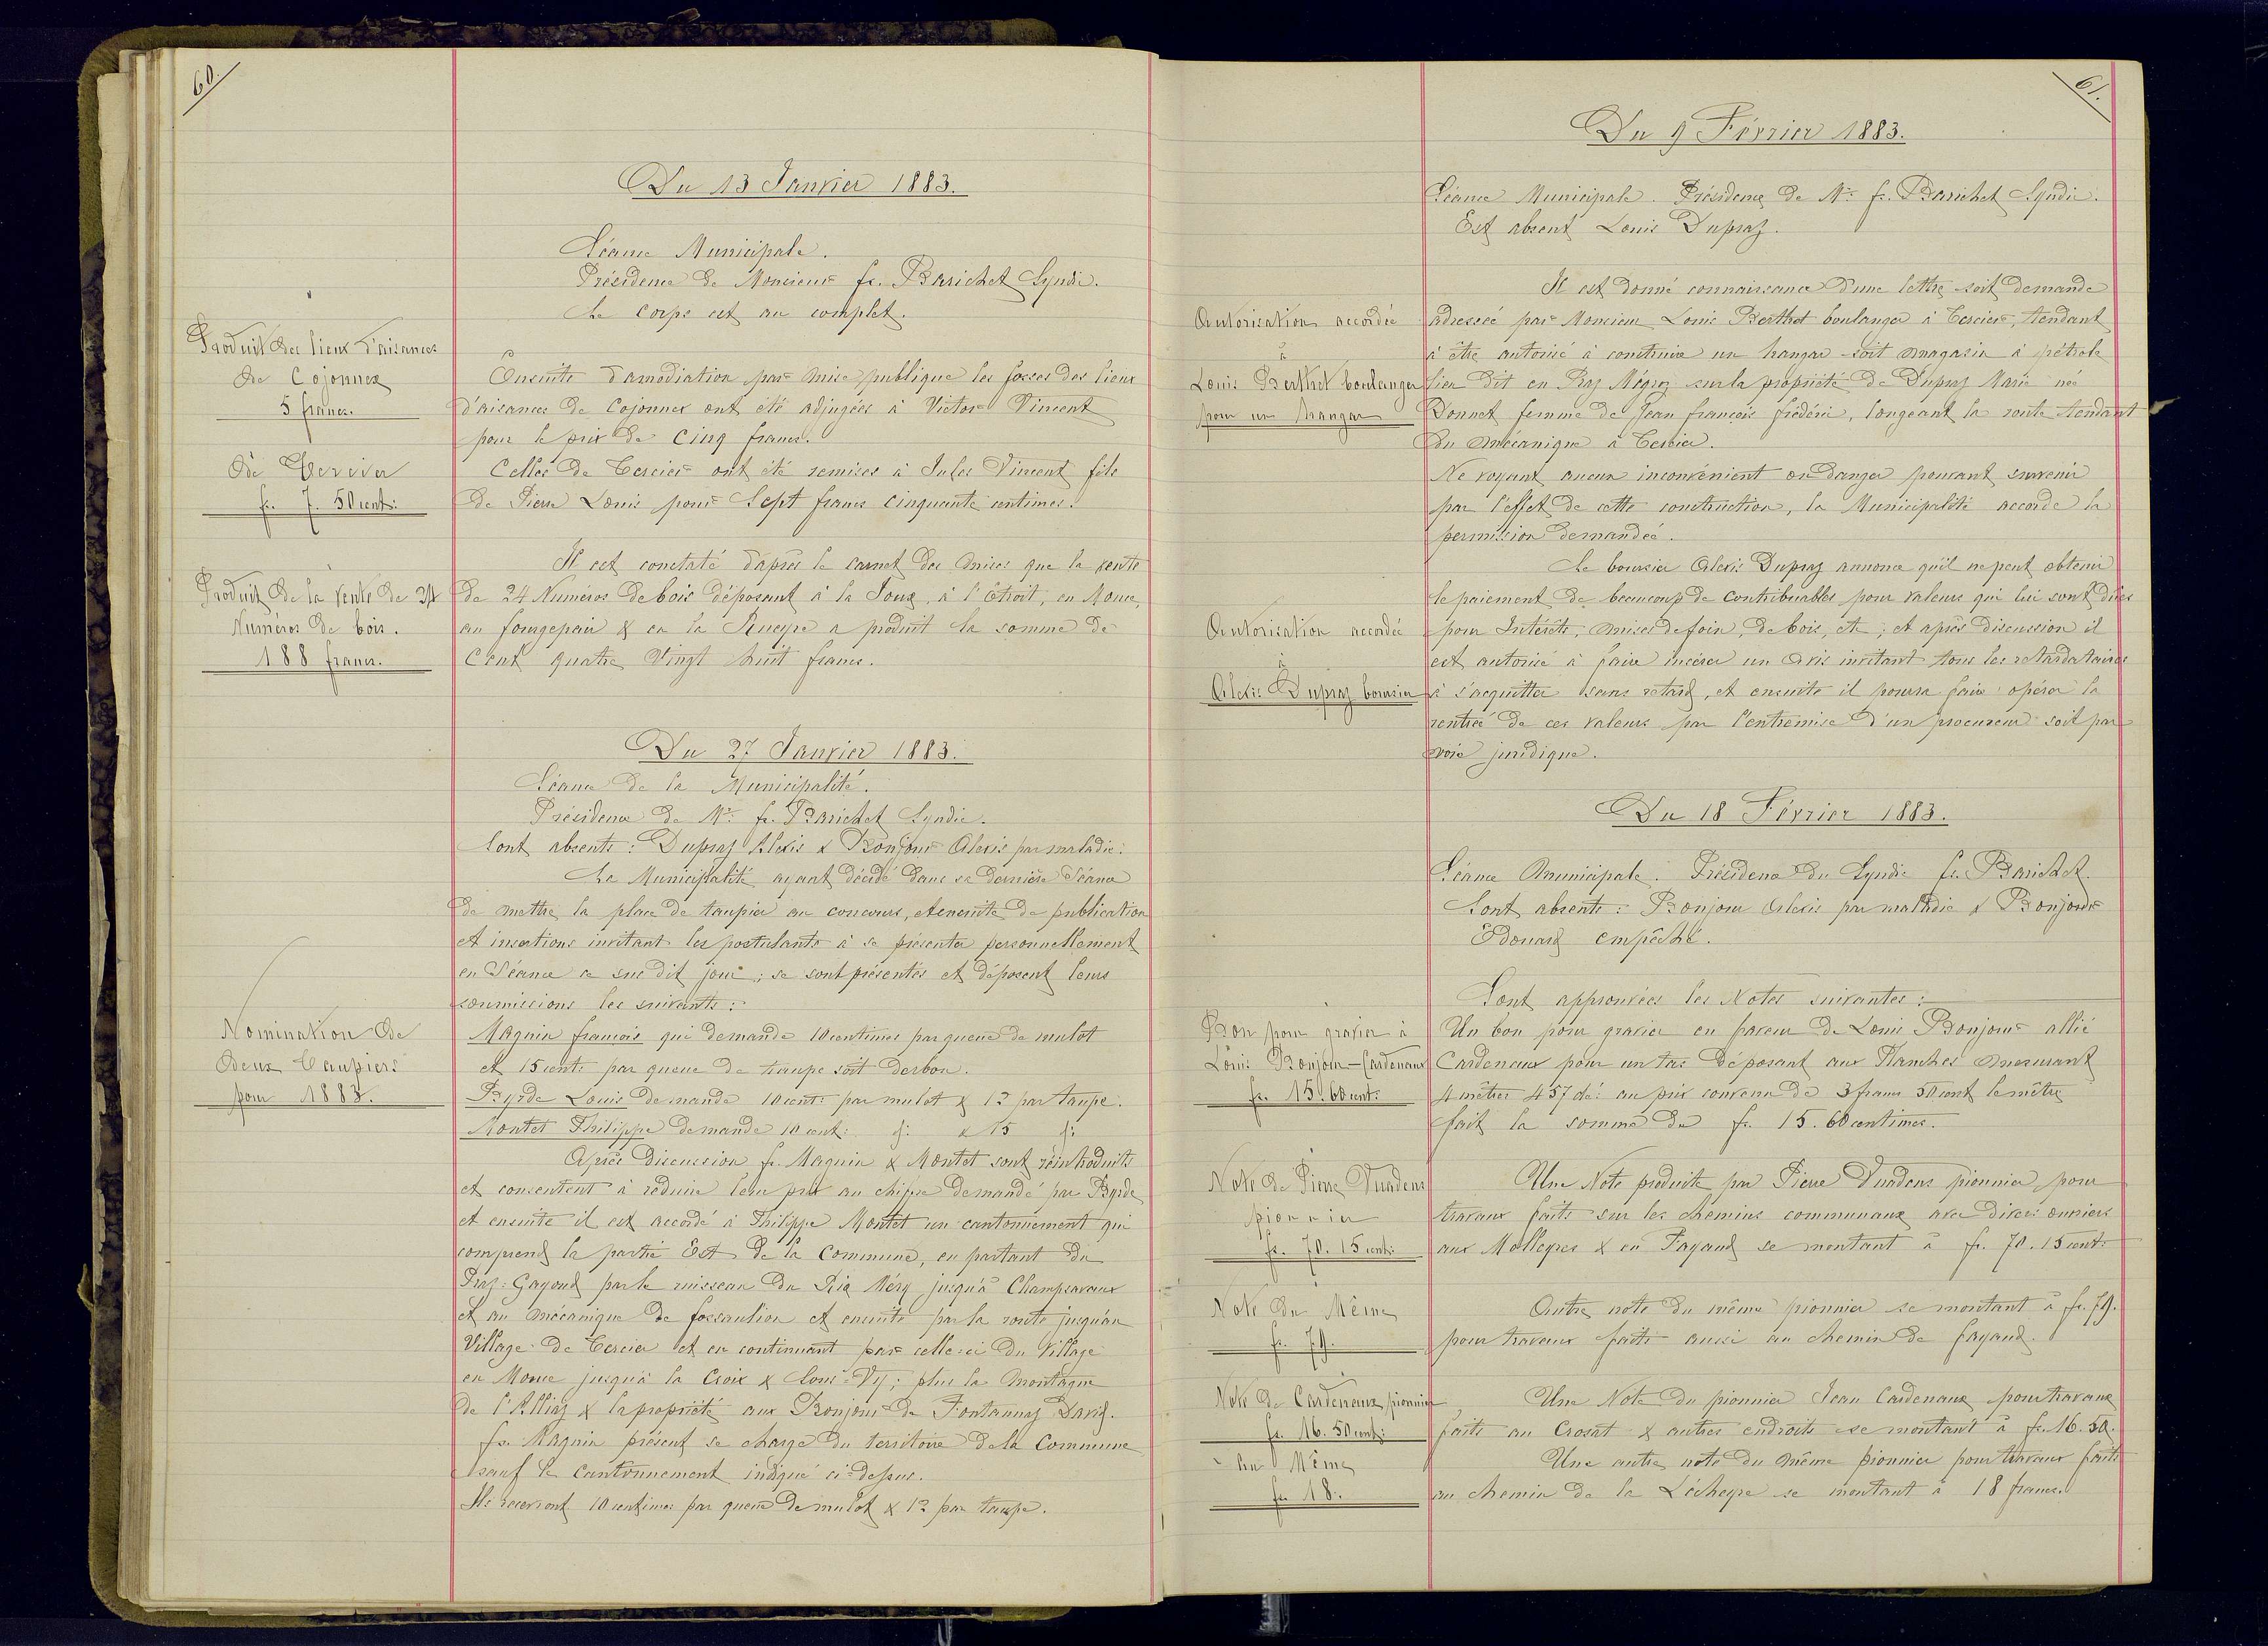 60.
Du 13 Janvier 1883.
Séance Municipale.
Présidence de Monsieur fs. Barichet Syndic.
Le corps est au complet.
Produit des lieux d'aisances
de Cojonnex
5 francs.
Ensuite d'amodiation par mise publique les fosses des lieux
d'aisances de Cojonnex ont été adjugées à Victor Vincent
pour le prix de Cinq francs.
de Tercier
fr. 7. 50 cent:
Celles de Tercier ont été remises à Jules Vincent fils
de Pierre Louis pour Sept francs cinquante centimes.
Produit de la vente de 24
Numéros de bois.
188 francs.
Il est constaté d'après le carnet des mises que la vente
de 24 Numéros de bois déposant à la Joux, à l'Etroit, en Mouce,
au & en la a produit la somme de
Cent quatre Vingt huit francs.
Du 27 Janvier 1883.
Séance de la Municipalité.
Présidence de Mr: fs. Barichet Syndic.
Sont absents: Dupraz Alexis & Bonjour Alexis par maladie.
Nomination de
deux Taupiers
pour 1883.
La Municipalité ayant décidé dans sa dernière Séance
de mettre la place de taupier au concours, et ensuite de publication
et insertions invitant les postulants à se présenter personnellement
en Séance ce sus dit jour; se sont présentés et déposent leurs
soumissions les suivants:
Magnin françois qui demande 10 centimes par queue de mulot
et 15 cent: par queue de taupe soit derbon.
Byrde Louis demande 10 cent: par mulot & 12 par taupe.
Montet Philippe demande 10 cent: d: & 15 d:
Après discussion fs. Magnin & Montet sont réintroduits
et consentent à réduire leur prix au chiffre demandé par Byrde
et ensuite il est accordé à Philippe Montet un cantonnement qui
comprend la partie Est de la Commune, en partant du
Praz-Gayoud par le ruisseau du jusqu'à Champsavaux
et au mécanique de et ensuite par la route jusqu'au
Village de Tercier et en continuant par celle-ci du Village
en Mouce jusqu'à la Croix & Sous-Vy; plus la montagne
de l'Alliaz & la propriété aux Bonjour de Fontannaz David.
fs. Magnin présent se charge du territoire de la Commune
sauf le Cantonnement indiqué ci-dessus.
Ils recevront 10 centimes par queue de mulot & 12 par taupe.
61.
Du 9 Février 1883.
Séance Municipale. Présidence de Mr: fs. Barichet Syndic.
Est absent Louis Dupraz.
Autorisation accordée
à
Louis Berthet boulanger
pour un hangar
Il est donné connaissance d'une lettre soit demande
adressée par Monsieur Louis Berthet boulanger à Tercier, tendant
à être autorisé à construire un hangar soit magasin à pétrole
lieu dit en Praz Mégroz sur la propriété de Dupraz Marie née
Bonnet femme de Jean françois frédéric, longeant la route tendant
du mécanique à Tercier.
Ne voyant aucun inconvénient ou danger pouvant survenir
par l'effet de cette construction, la Municipalité accorde la
permission demandée.
Autorisation accordée
à
Alexis Dupraz boursier
Le boursier Alexis Dupraz annonce qu'il ne peut obtenir
le paiement de beaucoup de contribuables pour valeurs qui lui sont dûes
pour Intérêts, mises de foin, de bois, etc; et après discussion il
est autorisé à faire insérer un Avis invitant tous les retardataires
à s'acquitter sans retard, et ensuite il pourra faire opérer la
rentrée de ces valeurs par l'entremise d'un procureur soit par
voie juridique.
Du 18 Février 1883.
Séance Municipale. Présidence du Syndic fs. Barichet.
Sont absents: Bonjour Alexis par maladie & Bonjour
Edouard empêché.
Sont approuvées les Notes suivantes:
Bon pour gravier à
Louis Bonjour-Cardenaux
fr. 15.60 cent:
Un bon pour gravier en faveur de Louis Bonjour allié
Cardenaux pour un tas déposant aux Planches mesurant
4 mêtres 457 dé: au prix convenu de 3 francs 50 cent le mêtre
fait la somme de fr. 15.60 centimes.
Note de Pierre Vuadens
pionnier
fr. 70.15 cent:
Une Note produite par Pierre Vuadens pionnier pour
travaux faits sur les chemins communaux avec divers ouvriers
aux Molleyres & en Fayaud se montant à fr. 70.15 cent:
Note du Même
fr. 79.
Autre note du même pionnier se montant à fr. 79.
pour travaux faits aussi au chemin de fayaud.
Note de Cardenaux pionnier
fr. 16.50 cent:
Une Note du pionnier Jean Cardenaux pour travaux
faits au Crosat & autres endroits se montant à fr. 16.50.
du Même
fr. 18.
Une autre note du même pionnier pour travaux faits
au chemin de la Lécheyre se montant à 18 francs.